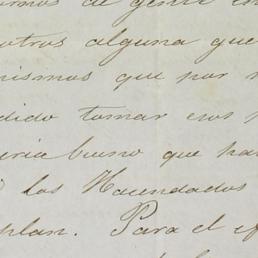 otros alguna que
mismos que por
dido tomar esos
eria bueno que
los Hacendados
plan. Para el